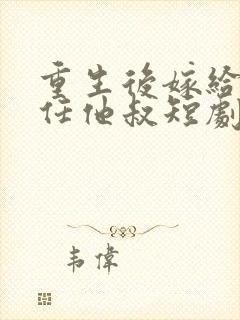 重生後嫁給
任他叔短劇
韦偉